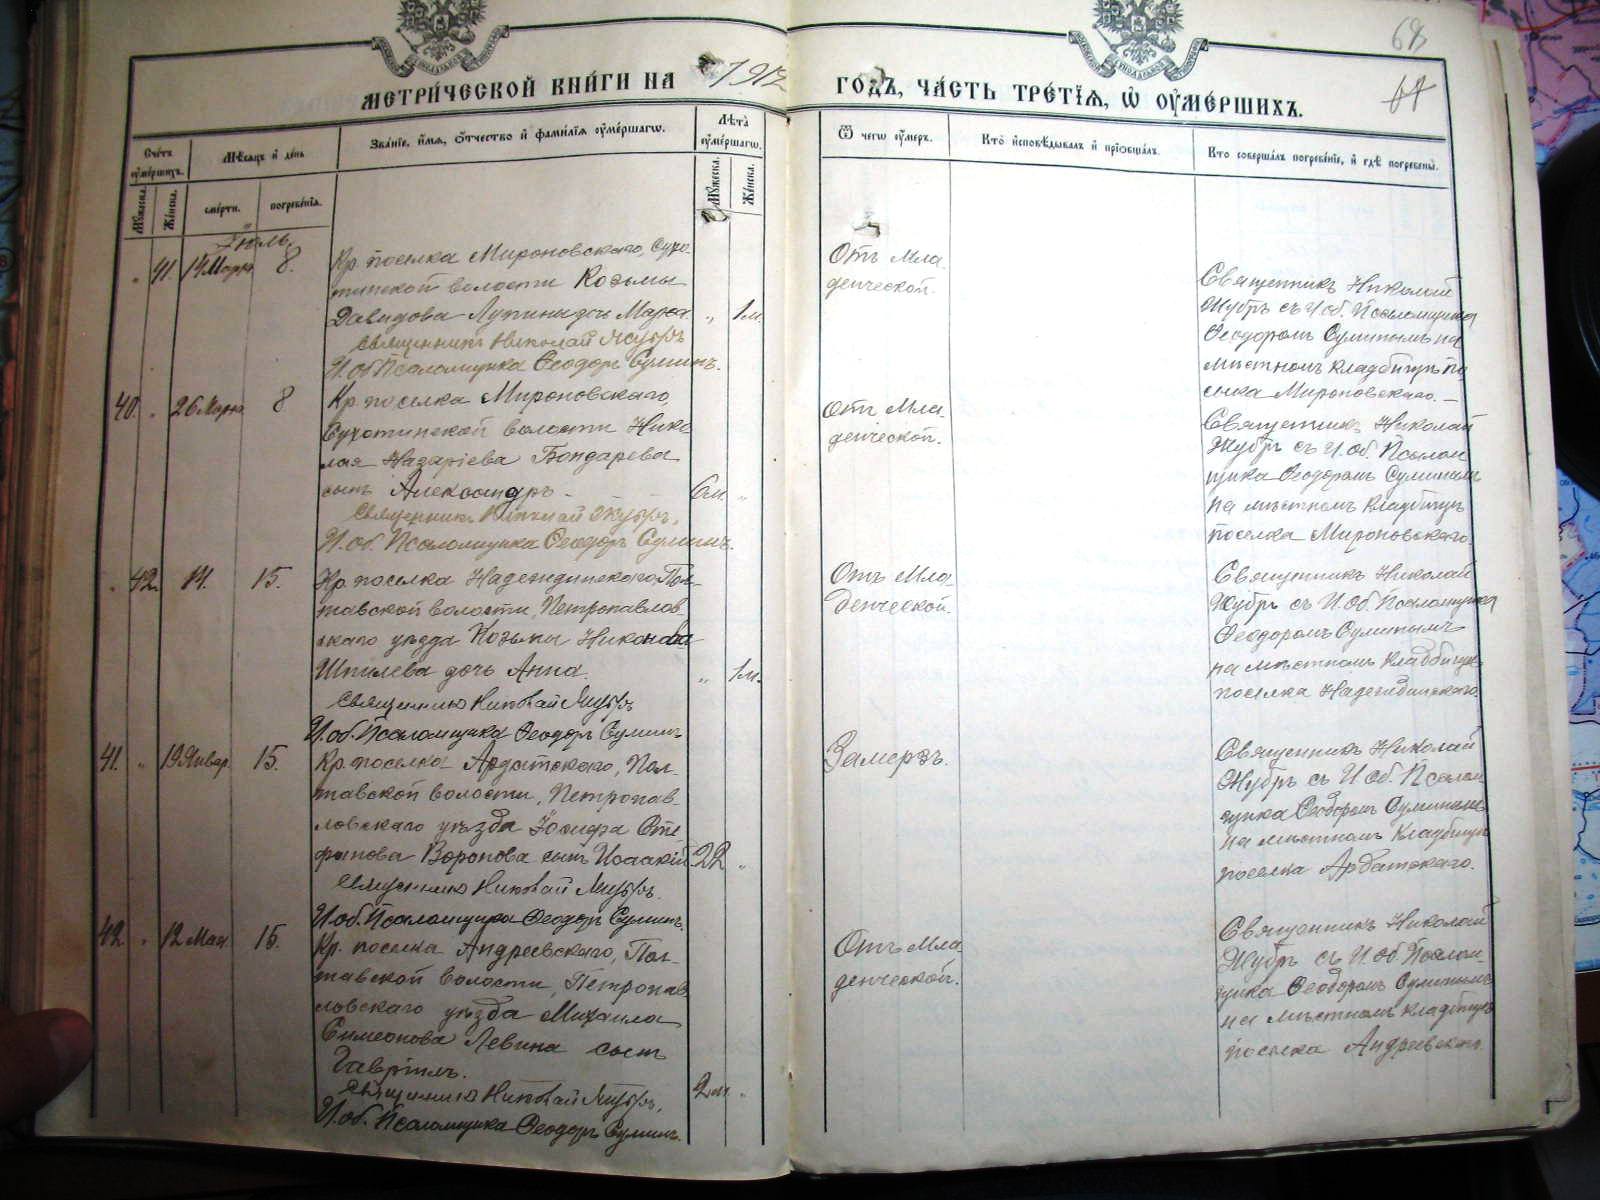 68
67
МЕТРИ́ЧЕСКОЙ КНИ́ГИ НА 1912 ГОДЪ, ЧА́СТЬ ТРЕ́ТІЯ, Ѡ҆ ОУ҆МЕ́РШИХЪ.
Сче́тъ оу҆ме́ршихъ.
Мѣ́сяцъ и҆ де́нь
Зва́ніе, и҆́мя, ѻ҆́тчество и҆ фами́лія оу҆ме́ршагѡ.
Лѣ́та оу҆ме́ршагѡ.
Ѿ чегѡ̀ оу҆́меръ.
Кто̀ и҆сповѣ́дывалъ и҆ прїѡбща́лъ.
Кто соверша́лъ погребе́ніе, и҆ гдѣ̀ погребены̀.
Мꙋ́жеска.
Же́нска.
сме́рти.
погребе́нія.
Мꙋ́жеска.
Же́нска.
Іюль.
" 41. 14 Марта 8.
Кр. поселка Мироновскаго, Сухо-
тинской волости Козьмы
Давидова Лупина дочь Марѳа " 1 м.
Священникъ Николай Жубръ
И. об. Псаломщика Ѳеодоръ Сулимъ.
Отъ Мла-
денческой.
Священникъ Николай
Жубръ съ И. об. Псаломщика
Ѳеодоромъ Сулимымъ на
мѣстномъ кладбищѣ по-
селка Мироновскаго. —
40. " 26 Марта 8
Кр. поселка Мироновскаго,
Сухотинской волости Нико
лая Назаріева Бондарева
сынъ Александръ - 6 м. "
Священникъ Николай Жубръ.
И. об. Псаломщика Ѳеодоръ Сулимъ.
Отъ Мла-
денческой.
Священникъ Николай
Жубръ съ И. об. Псалом
щика Ѳеодоромъ Сулимымъ
на мѣстномъ кладбищѣ
поселка Мироновскаго.
" 42. 14. 15.
Кр. поселка Надеждинскаго, Пол-
тавской волости, Петропавлов
скаго уѣзда Козьмы Никонова
Шпилева дочь Анна. " 1 м.
Священникъ Николай Жубръ
И. об. Псаломщика Ѳеодоръ Сулимъ
Отъ Мла-
денческой.
Священникъ Николай
Жубръ съ И. об. Псаломщика
Ѳеодоромъ Сулимымъ
на мѣстномъ кладбищѣ
поселка Надеждинскаго.
41. " 19 Январ. 15.
Кр. поселка Ардатскаго, Пол-
тавской волости, Петропав-
ловскаго уѣзда Іосифа Сте
фанова Воронова сынъ Исаакій 22 "
Священникъ Николай Жубръ.
И. об. Псаломщика Ѳеодоръ Сулимъ.
Замерзъ.
Священникъ Николай
Жубръ съ И. об. Псалом
щика Ѳеодоромъ Сулимымъ
на мѣстномъ кладбищѣ
поселка Ардатскаго.
42. " 12 Мая. 15.
Кр. поселка Андреевскаго, Пол-
тавской волости, Петропав
ловскаго уѣзда Михаила
Симеонова Левина сынъ
Гавріилъ. 2 м. "
Священникъ Николай Жубръ,
И. об. Псаломщика Ѳеодоръ Сулимъ.
Отъ Мла
денческой.
Священникъ Николай
Жубръ съ И. об. Псалом-
щика Ѳеодоромъ Сулимымъ
на мѣстномъ кладбищѣ
поселка Андреевскаго.